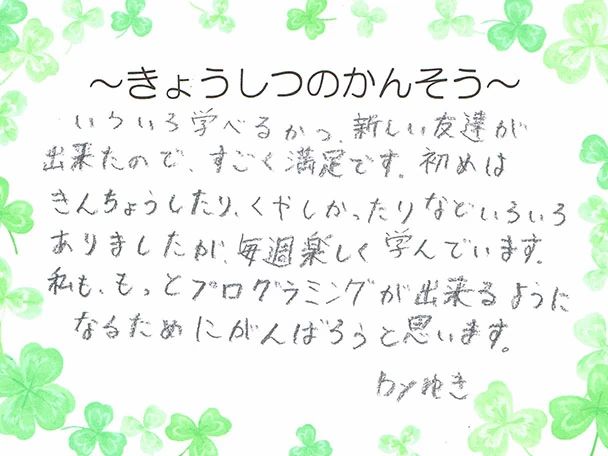 ～きょうしつのかんそう～
いろいろ学べるかつ、新しい友達が
出来たので、すごく満足です。初めは
きんちょうしたり、くやしかったりなどいろいろ
ありましたが、毎週楽しく学んでいます。
私も、もっとプログラミングが出来るように
なるためにがんばろうと思います。
byゆき